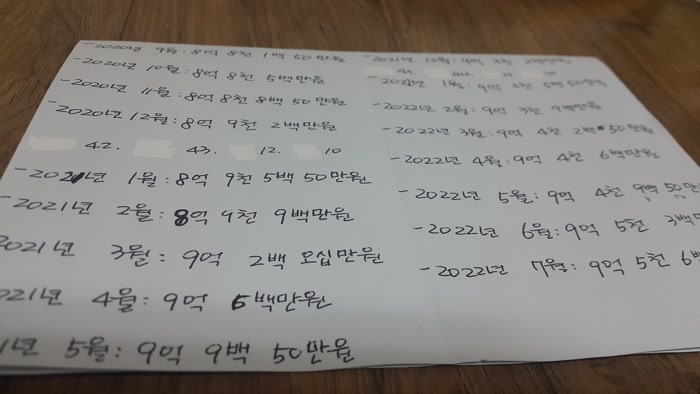 -2020년 9월: 8억 8천 1백 50만원
-2020년 10월: 8억 8천 5백만원
-2020년 11월: 8억 8천 8백 50만원
-2020년 12월: 8억 9천 2백만원
42. 43. 12. 10
-2021년 1월: 8억 9천 5백 50만원
-2021년 2월: 8억 9천 9백만원
2021년 3월: 9억 2백 오십만원
021년 4월: 9억 6백만원
1년 5월: 9억 9백 50만원
-2021년 12월: 9억 2백만원
43. 10
1월: 9억 3천 5백 50만원
-2022년 2월: 9억 3천 9백만원
-2022년 3월: 9억 4천 2백 50만원
-2022년 4월: 9억 4천 6백만원
-2022년 5월: 9억 4천 9백 50만
-2022년 6월: 9억 5천 3백
-2022년 7월: 9억 5천 6백